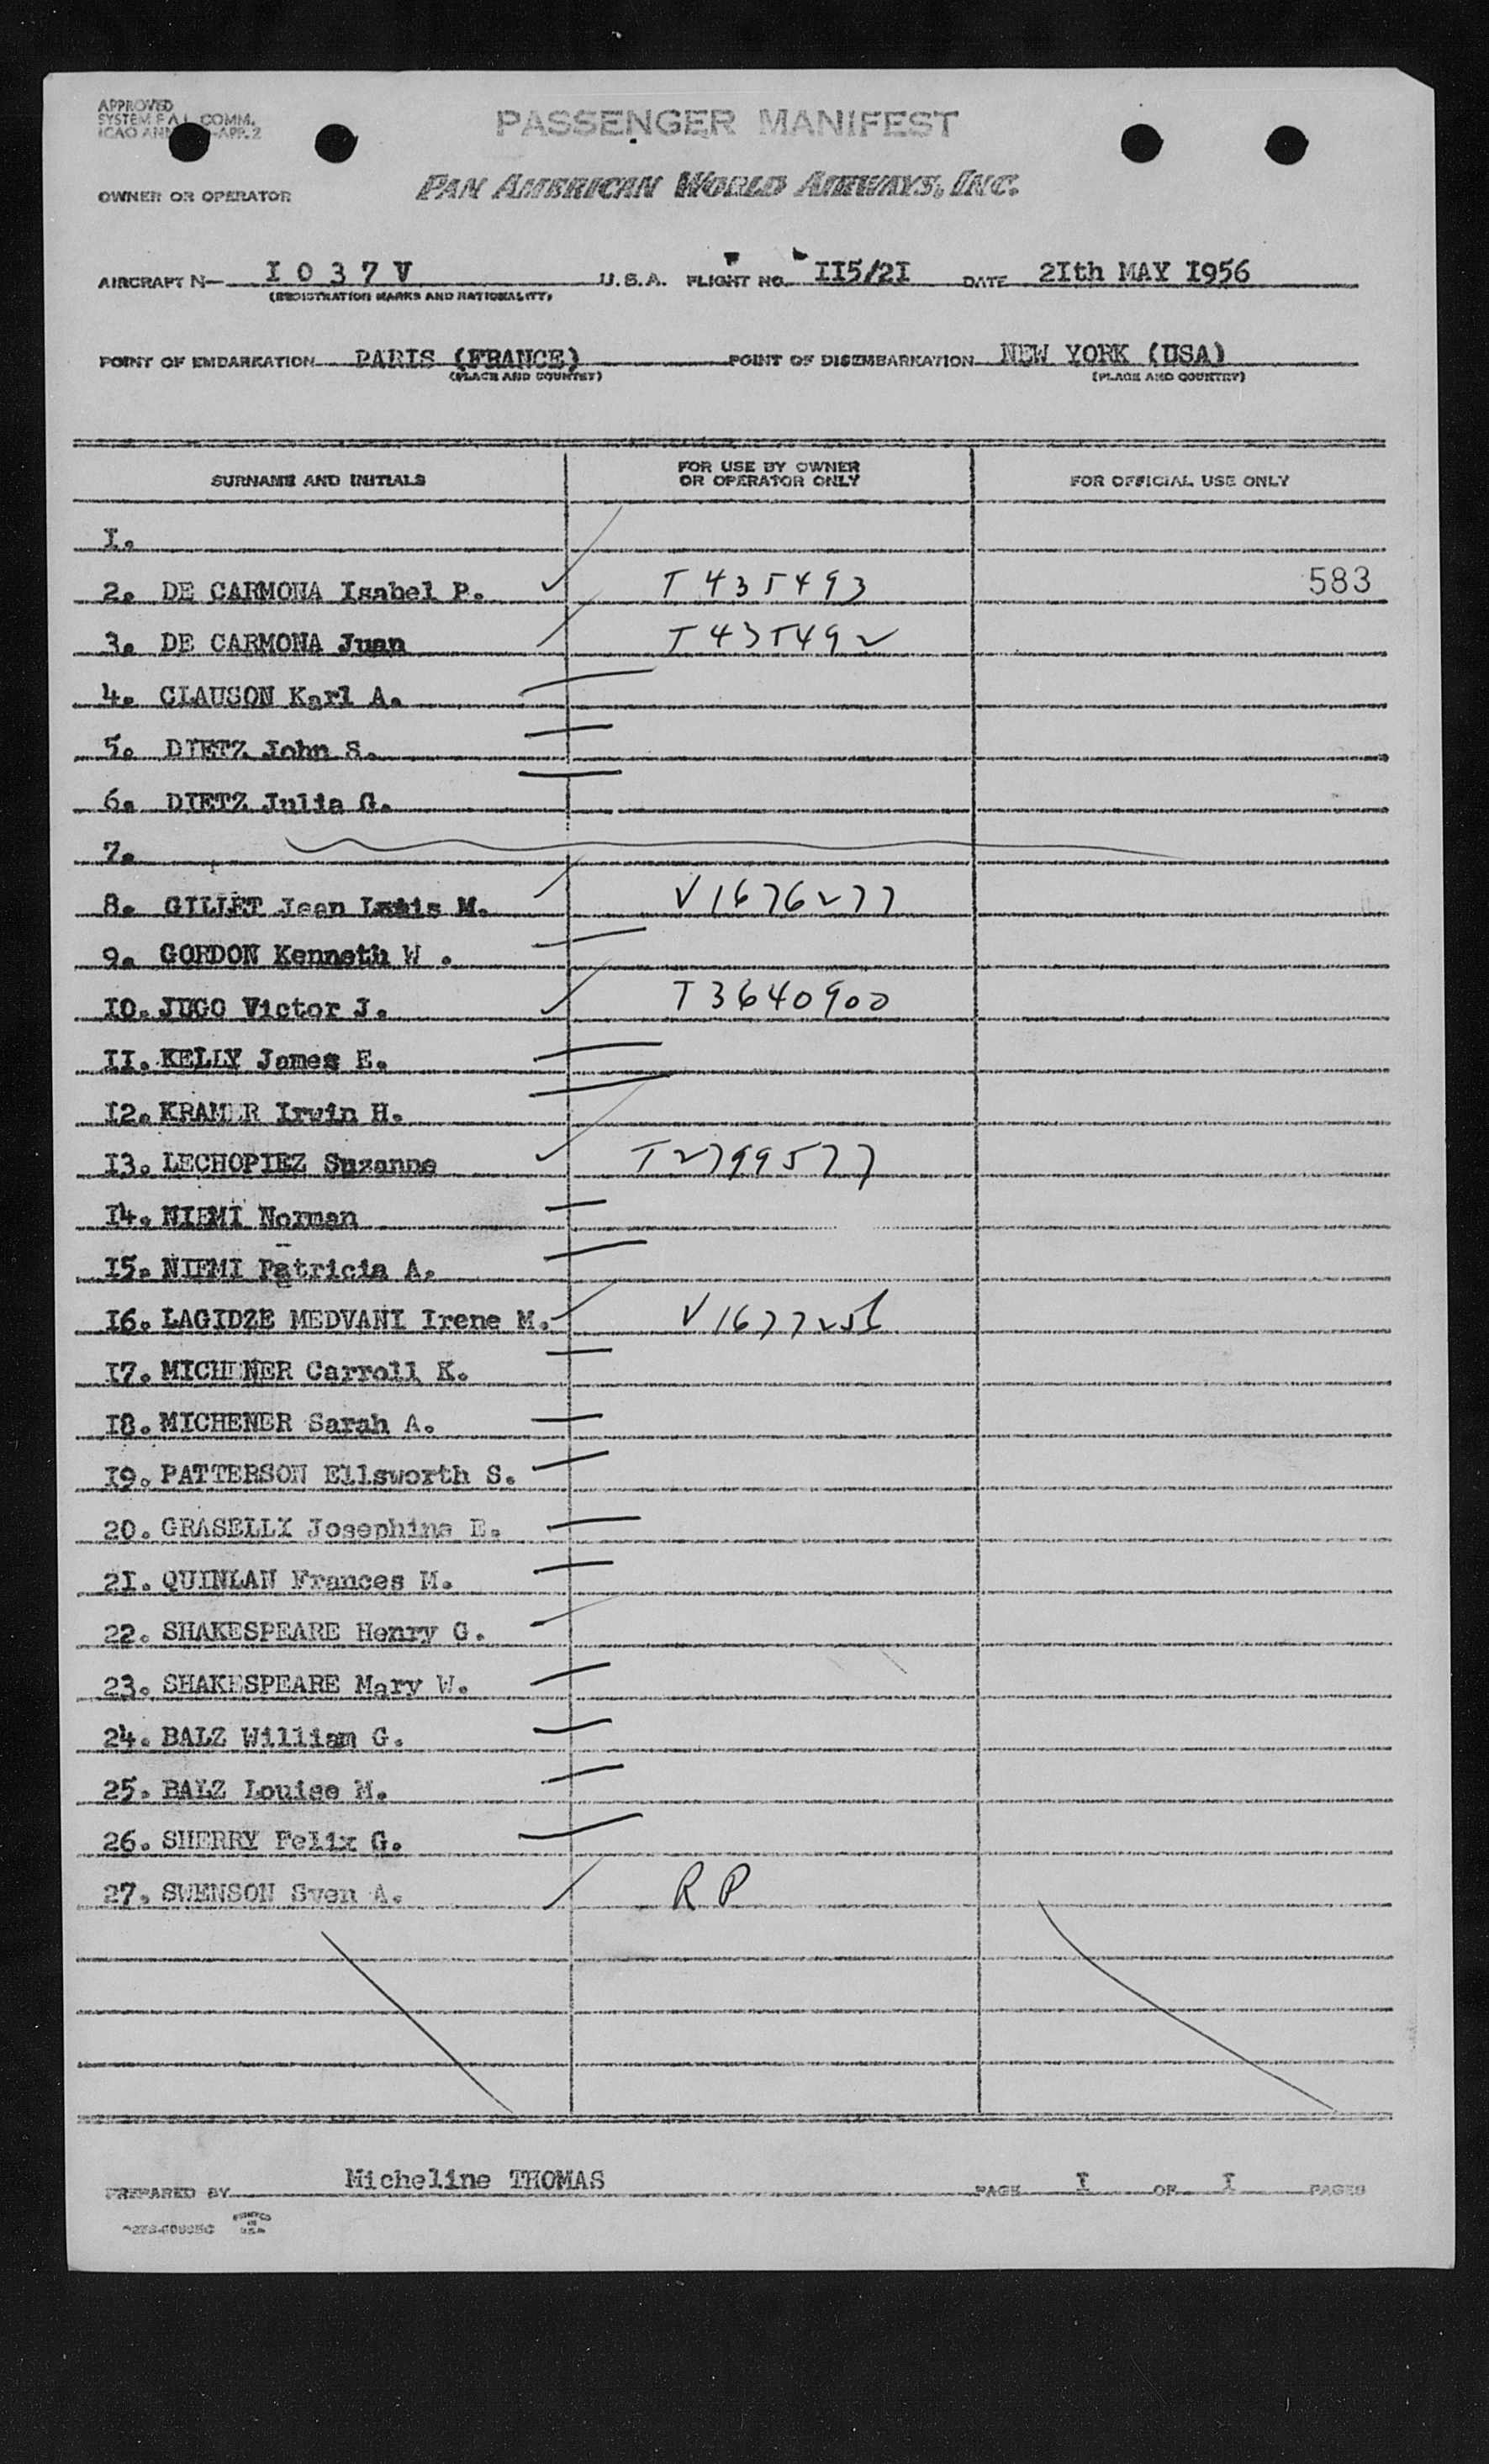 APPROVED
SYSTEM F A L COMM.
ICAO ANN -APP. 2
PASSENGER MANIFEST
OWNER OR OPERATOR PAN AMERICAN WORLD AIRWAYS, INC.
AIRCRAFT N- I 0 3 7 V U.S.A. FLIGHT NO. II5/2I DATE 2Ith MAY I956
(REGISTRATION MARKS AND NATIONALITY)
POINT OF EMBARKATION PARIS (FRANCE) POINT OF DISEMBARKATION NEW YORK (USA)
(PLACE AND COUNTRY) (PLACE AND COUNTRY)
SURNAME AND INITIALS FOR USE BY OWNER OR OPERATOR ONLY FOR OFFICIAL USE ONLY
I.
2. DE CARMONA Isabel P. T 435493 583
3. DE CARMONA Juan T435492
4. CLAUSON Karl A.
5. DIETZ John S.
6. DIETZ Julia G.
7.
8. GILLET Jean Louis M. V1676277
9. GORDON Kenneth W .
I0. JUGO Victor J. T3640900
II. KELLY James E.
I2. KRAMER Irwin H.
I3. LECHOPIEZ Suzanne T2799577
I4. NIEMI Norman
I5. NIEMI Patricia A.
I6. LAGIDZE MEDVANI Irene M. V1677256
I7. MICHENER Carroll K.
I8. MICHENER Sarah A.
I9. PATTERSON Ellsworth S.
20. GRASELLY Josephine E.
2I. QUINLAN Frances M.
22. SHAKESPEARE Henry G.
23. SHAKESPEARE Mary W.
24. BALZ William G.
25. BALZ Louise M.
26. SHERRY Felix G.
27. SWENSON Sven A. R P
PREPARED BY Micheline THOMAS PAGE I OF I PAGES
PRINTED IN U.S.A.